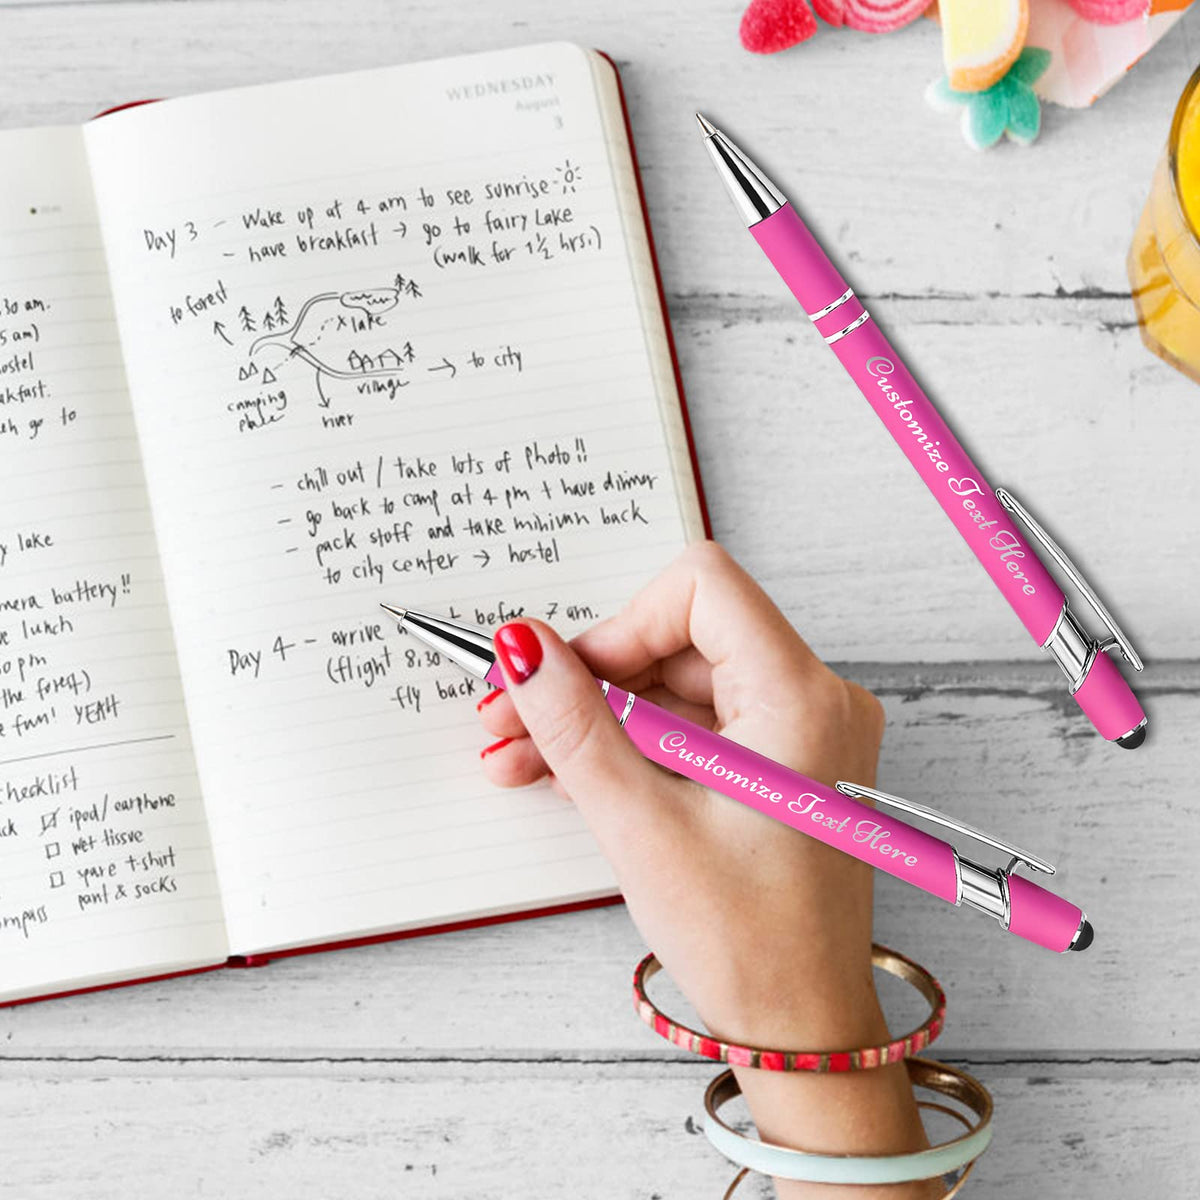 WEDNESDAY
August
3
Day 3 - Wake up at 4 am to see sunrise
- have breakfast → go to fairy Lake
(walk for 1½ hrs.)
to forest
x lake
→ to city
village
camping
river
- chill out / take lots of photo!!
- go back to camp at 4 pm + have dinner
- pack stuff and take minivan back
to city center → hostel
Day 4 - arrive before 7 am.
(flight 8,30
fly back
:30 am.
5 am)
ostel
akfast.
go to
y lake
mera battery!!
e lunch
0 pm
the forest)
e fun! YEAH
checklist
ck ☑ ipod/earphone
☐ wet tissue
☐ spare t-shirt
pant & socks
ompass
Customize Text Here
Customize Text Here